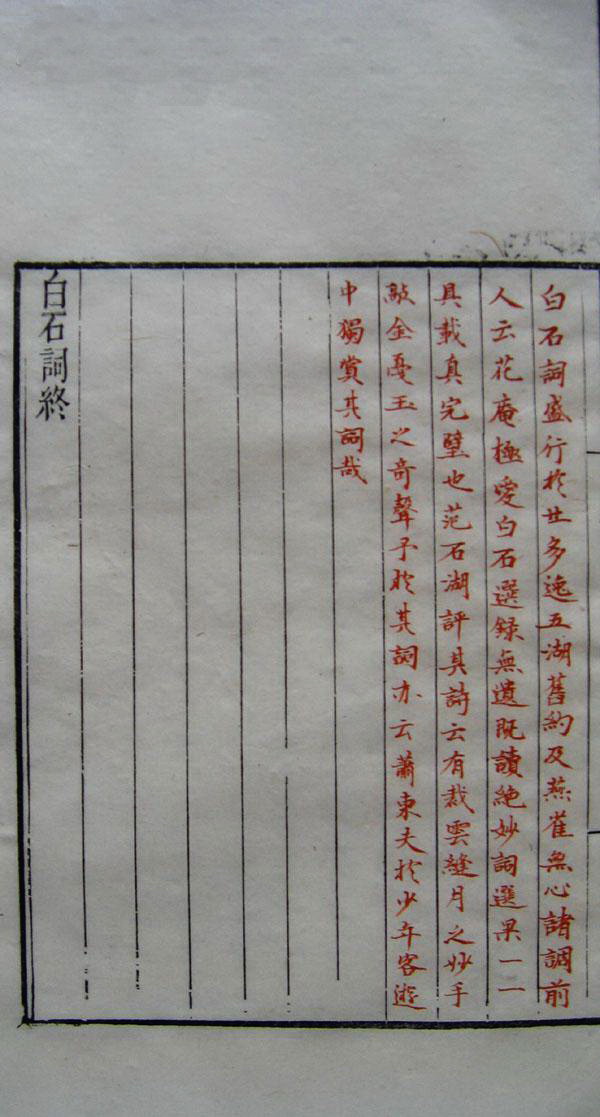 白石詞盛行於世多逸五湖舊約及燕雀無心諸調前
人云花庵極愛白石選録無遺既讀絶妙詞選果一一
具載真完璧也范石湖評其詩云有裁雲縫月之妙手
敲金戞玉之奇聲予於其詞亦云蕭東夫於少年客遊
中獨賞其詞哉
白石詞終